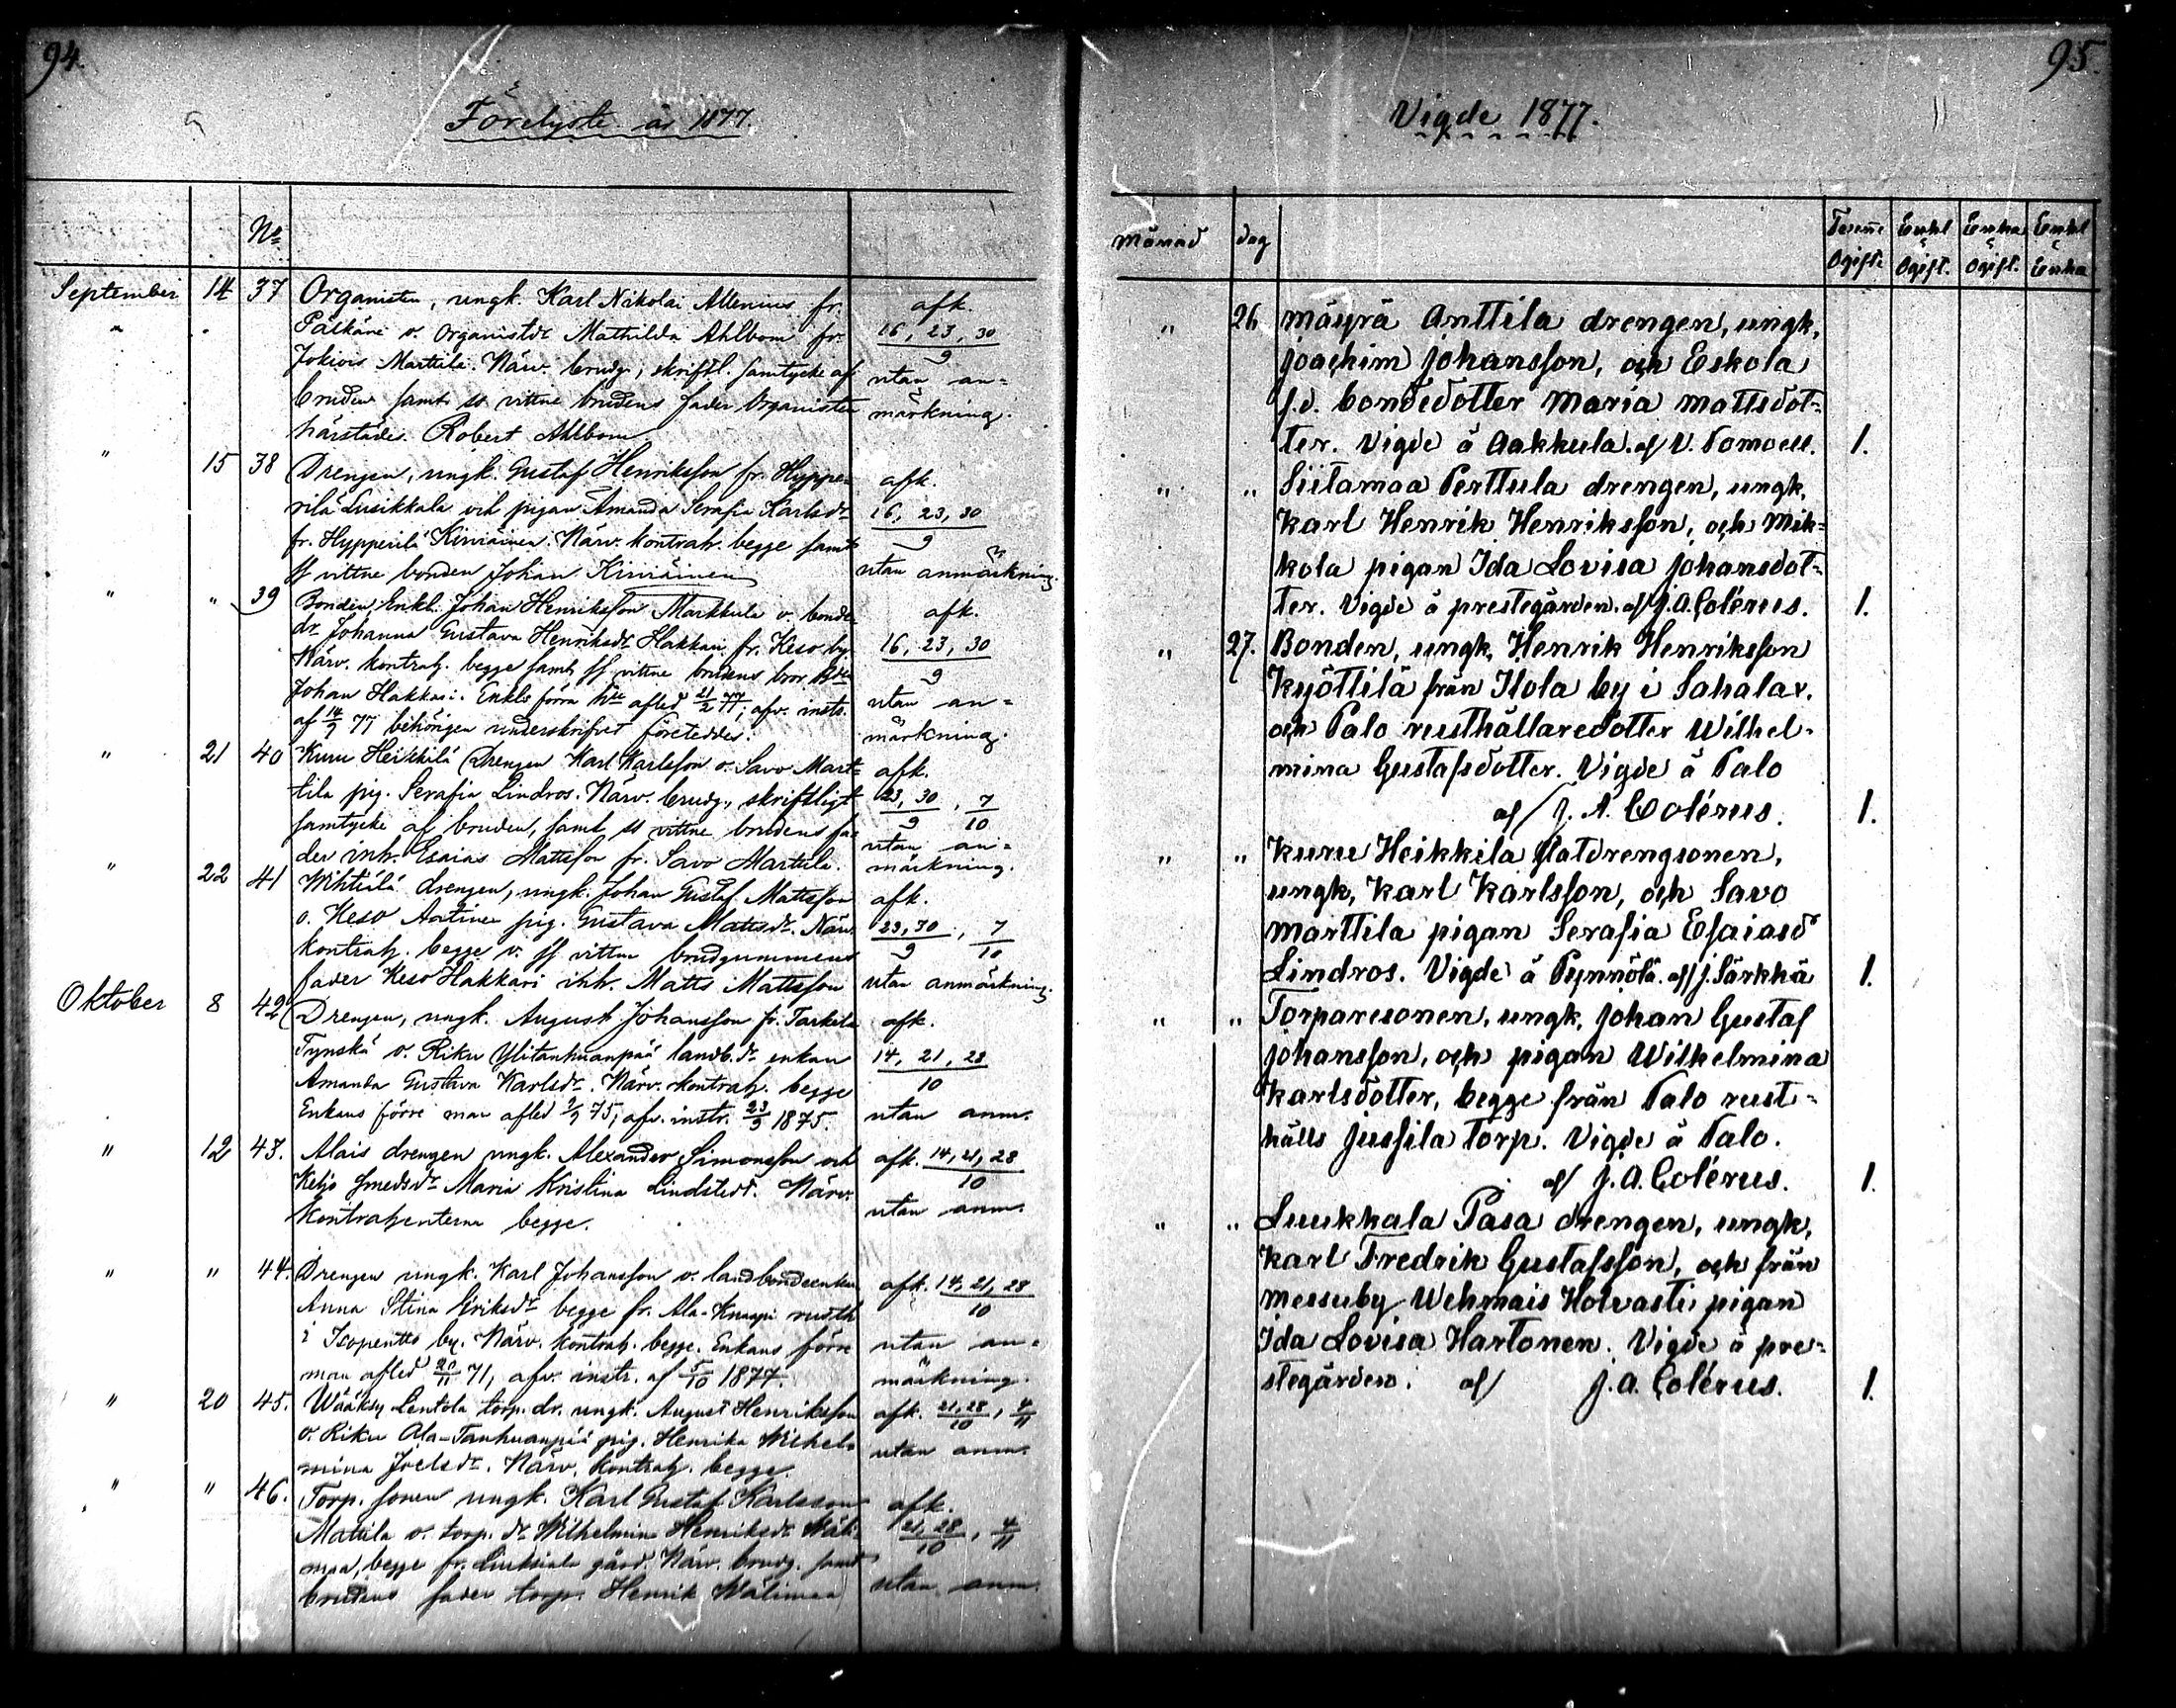 94.
Förelyste år 1877.
No
September 14 37 Organisten, ungk. Karl Nikolai Allenius fr. afk.
" . Pälkäne o. Organistdr Mathilda Ahlbom fr. 16, 23, 30
Jokiois Marttila. Närv. brudg., skriftl. samtycke af 9 utan an=
bruden samt ss vittne brudens fader Organisten märkning.
härstädes Robert Ahlbom
" 15 38 Drengen, ungk. Gustaf Henriksson fr. Hyppe= afk.
rilä Lusikkala och pigan Amanda Serafia Karlsdr 16, 23, 30
fr. Hypperilä Kirriäinen. Närv. kontrah. begge samt 9
ss vittne bonden Johan Kirriäinen utan anmärkning.
" " 39 Bonden, Enkl. Johan Henriksson Markkula o. bonde= afk.
dr Johanna Gustava Henriksdr Hakkari fr. Keso by 16, 23, 30
Närv. kontrah. begge samt ss vittne brudens bror
9
Johan Hakkari. Enkls förra afled 21/2 77; afv. instr. utan an=
af 14/9 77 behörigen underskrifvet företeddes. märkning.
" 21 40 Kuru Heikkilä Drengen Karl Karlsson o. Savo Mart= afk.
tila pig. Serafia Lindros. Närv. brudg., skriftligt 23, 30, 7
samtycke af bruden, samt ss vittne brudens fa= 9 10
der inh. Esaias Mattsson fr. Savo Marttila. utan an= märkning.
" 22 41 Wihtiälä drengen, ungk. Johan Gustaf Mattsson afk.
o. Keso Anttinen pig. Gustava Mattsdr. Närv. 23, 30, 7
kontrah. begge o. ss vittne brudgummens 9 10
fader Keso Hakkari inh. Matts Mattsson utan anmärkning.
Oktober 8 42 Drengen, ungk. August Johansson fr. Tarkila afk.
Tynskä o. Riku Ylitanhuanpää landb. dr enkan 14, 21, 28
Amanda Gustava Karlsdr. Närv. kontrah. begge 10
Enkans förre man afled 2/9 75; afv. instr. 23/9 1875. utan anm.
" 12 43. Alais drengen ungk. Alexander Simonsson och afk. 14, 21, 28
Keljo smedsdr Maria Kristina Lindstedt. Närv. 10
Kontrahenterna begge. utan anm.
" " 44. Drengen ungk. Karl Johansson o. landbondeenkan afk. 14, 21, 28
Anna Stina Eriksdr begge fr. Ala-Knaapi rusth 10
i Isopentto by. Närv. kontrah. begge. Enkans förre utan an=
man afled 20/11 71, afv. instr. af 5/10 1877. märkning.
" 20 45. Wääksy Lentola torp. dr. ungk. August Henriksson afk. 21, 28/10, 4/11
o. Riku Ala-Tanhuanpää pig. Henrika Wilhel= utan anm.
mina Joelsdr. Närv. kontrah. begge.
" " 46. Torp. sonen ungk. Karl Gustaf Karlsson afk.
Mattila o. torp. dr Wilhelmina Henriksdr Wäli= 21, 28/10, 4/11
maa, begge fr. Liuksiala gård. Närv. brudg. samt
brudens fader torp. Henrik Wälimaa utan anm.
95.
Vigde 1877.
månad dag Tvenne Ogifta Enkl o Ogift. Enka o Ogift. Enkl o Enka
" 26 Mäyrä Anttila drengen, ungk,
Joachim Johansson, och Eskola
f.d. bondedotter Maria Mattsdot=
ter. Vigde å Aakkula. af V. Tomoell. 1.
" " Siitamaa Perttula drengen, ungk,
Karl Henrik Henriksson, och Mik=
kola pigan Ida Lovisa Johansdot=
ter. Vigde å prestegården. af J. A. Colérus. 1.
" 27. Bonden, ungk, Henrik Henriksson
Kyöttilä från Ilola by i Sahalax.
och Palo rusthållaredotter Wilhel=
mina Gustafsdotter. Vigde å Palo
af J. A. Colérus. 1.
" " Kuru Heikkila statdrengsonen,
ungk, Karl Karlsson, och Savo
Marttila pigan Serafia Esaiasd
Lindros. Vigde å Pynnölä. af J. Särkkä 1.
" " Torparesonen, ungk, Johan Gustaf
Johansson, och pigan Wilhelmina
Karlsdotter, begge från Palo rust=
hålls Jussila torp. Vigde å Palo.
af J. A. Colérus. 1.
" " Luukkala Pasa drengen, ungk,
Karl Fredrik Gustafsson, och från
Messuby Wehmais Holvasti pigan
Ida Lovisa Hartonen. Vigde å pre=
stegården. af J. A. Colérus. 1.